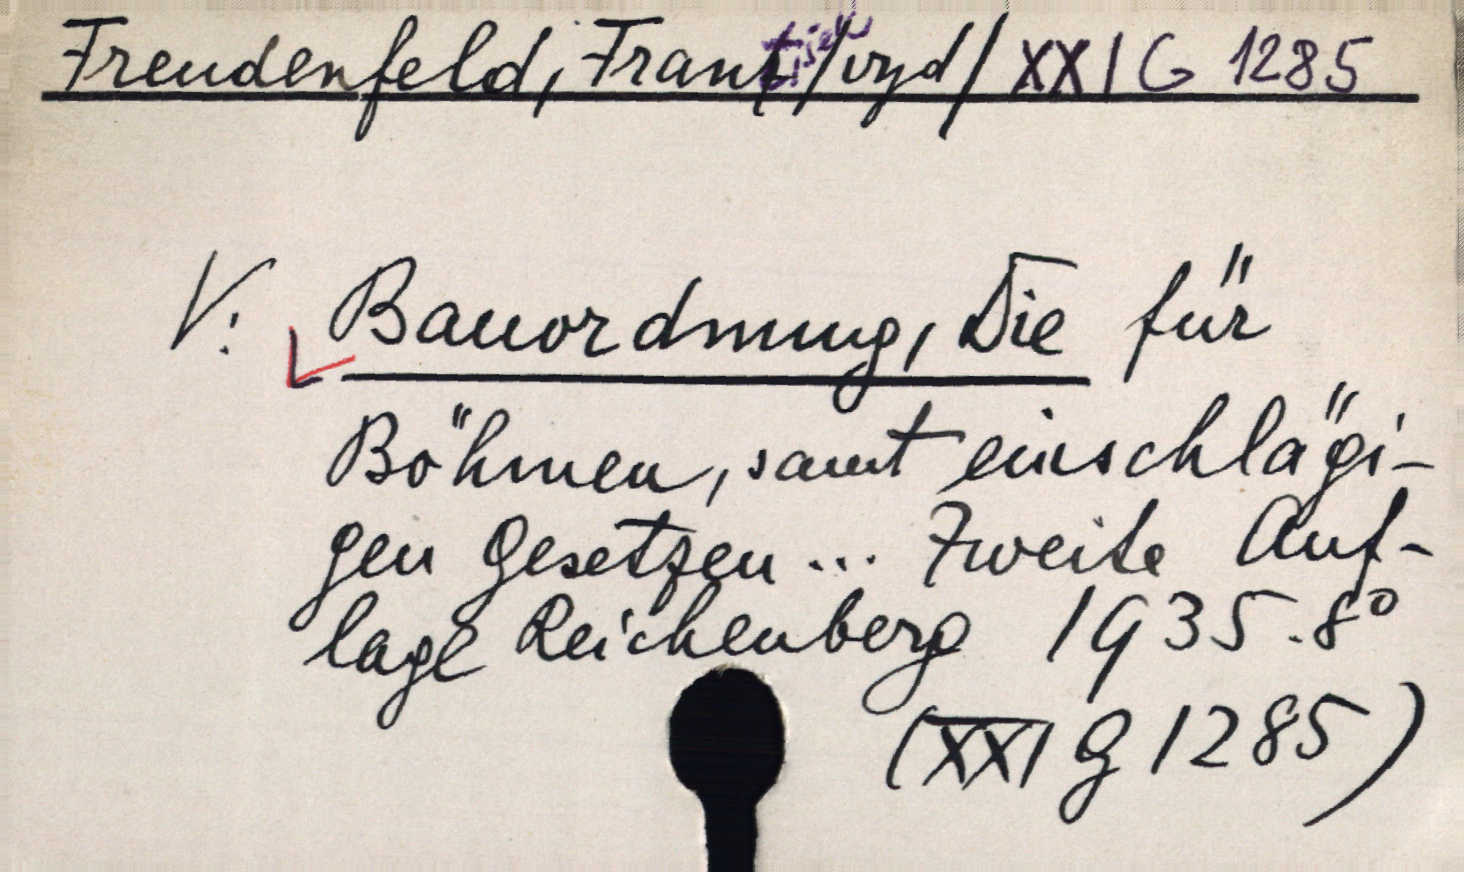 Freudenfeld, František /vyd/ XXI G 1285
V: Bauordnung, Die für
Böhmen, samt einschlägi-
gen Gesetzen... Zweite Auf-
lage Reichenberg 1935. 8°
(XXI G 1285)